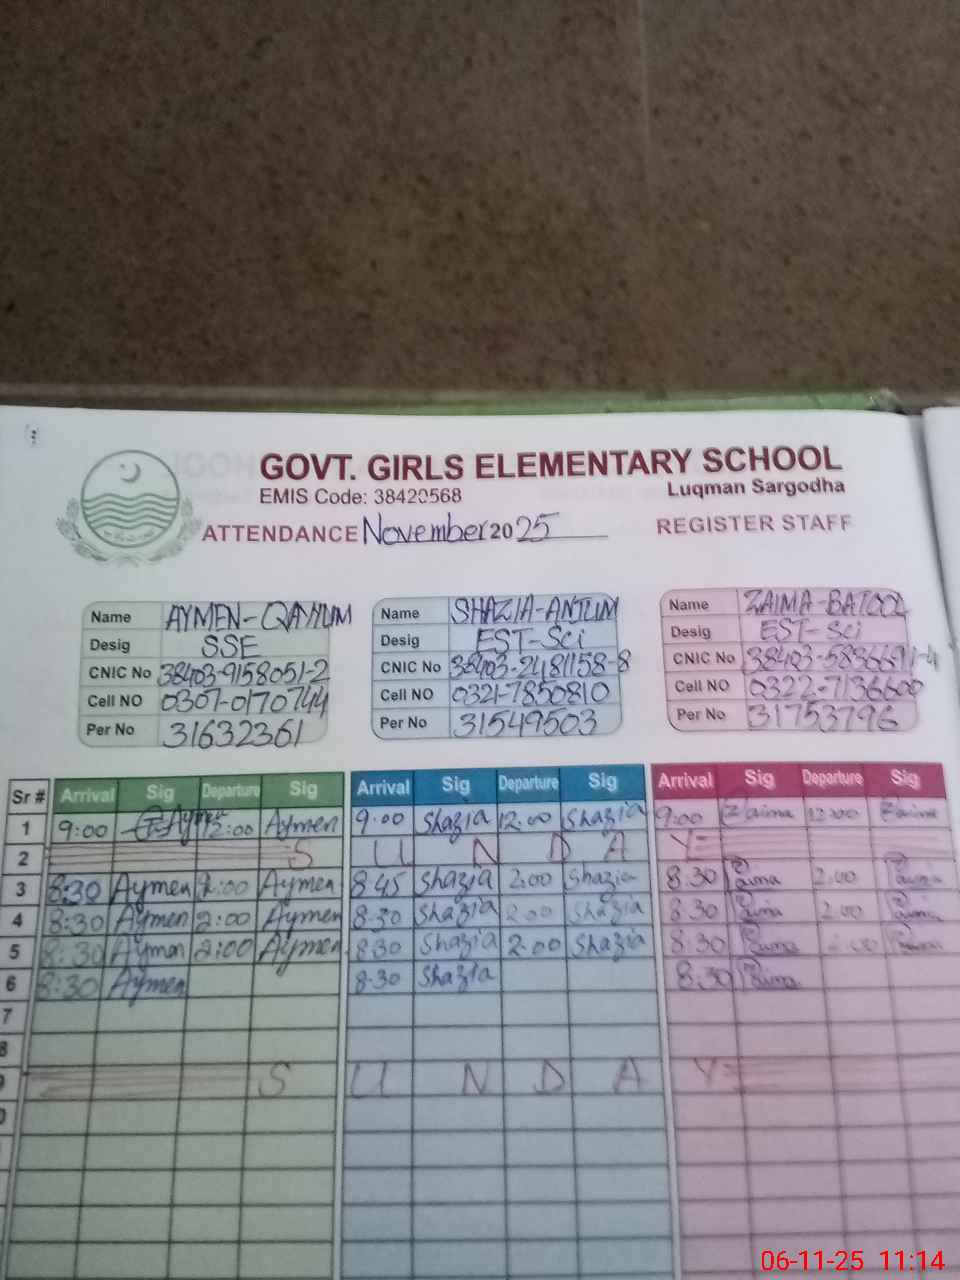 GOVT. GIRLS ELEMENTARY SCHOOL
EMIS Code: 38420568 Luqman Sargodha
ATTENDANCE November 2025 REGISTER STAFF
Name AYMEN-QAYYUM Name SHAZIA-ANJUM Name ZAIMA-BATOOL
Desig SSE Desig EST-Sci Desig EST-Sci
CNIC No 38403-9158051-2 CNIC No 38403-2481158-8 CNIC No
Cell NO 0307-0170744 Cell NO 0321-7850810 Cell NO 0322-7136600
Per No 31632361 Per No 31549503 Per No 31753796
Sr # Arrival Sig Departure Sig Arrival Sig Departure Sig Arrival Sig Departure Sig
1 9:00 Aymen 12:00 Aymen 9:00 Shazia 12:00 Shazia 9:00 Zaima 12:00 Zaima
2 S U N D A Y
3 8:30 Aymen 2:00 Aymen 8:45 Shazia 2:00 Shazia 8:30 Zaima 2:00 Zaima
4 8:30 Aymen 2:00 Aymen 8:30 Shazia 2:00 Shazia 8:30 Zaima 2:00 Zaima
5 8:30 Aymen 2:00 Aymen 8:30 Shazia 2:00 Shazia 8:30 Zaima 2:00 Zaima
6 8:30 Aymen 8:30 Shazia 8:30 Zaima
7
8
9 S U N D A Y
06-11-25 11:14